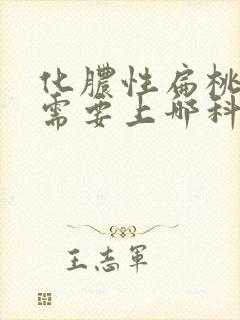 化膿性扁桃
需要上哪科
王志軍